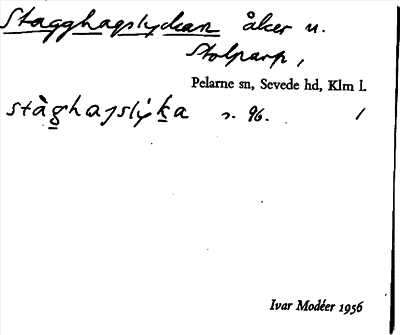 Stagghagslyckan åker u.
Stolparp,
Pelarne sn, Sevede hd, Klm l.
stàg̲hagslýk̲a s. 96. 1
Ivar Modéer 1956